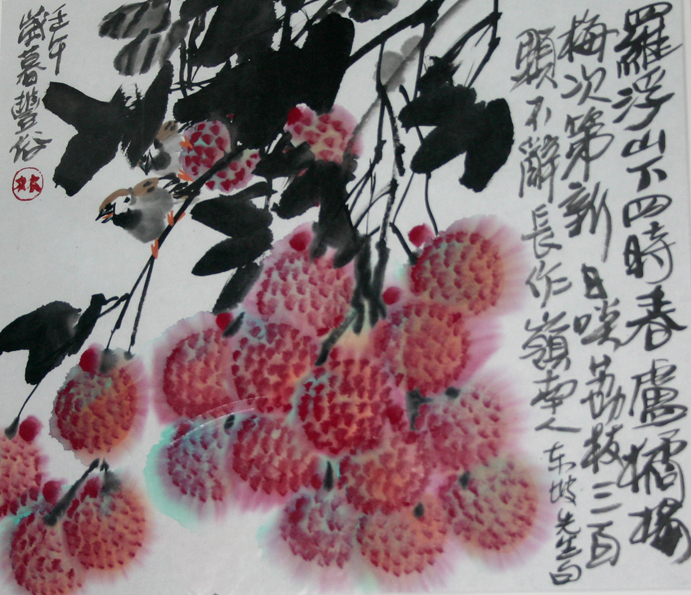 羅浮山下四時春盧橘楊
梅次第新日啖荔枝三百
顆不辭長作嶺南人东坡先生句
壬午
歲暮豐俗